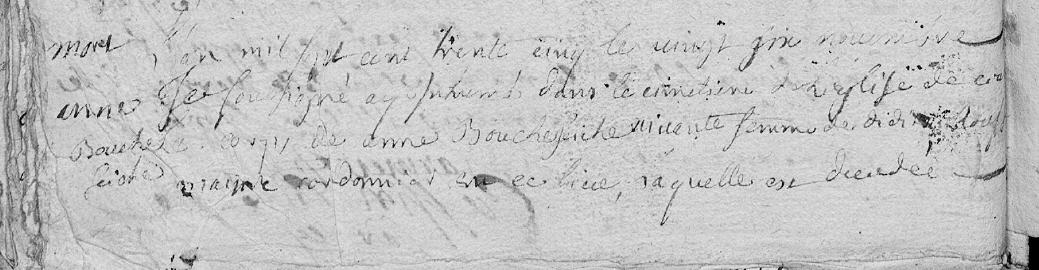 mort L'an mil sept cent trente cinq le vingt six novembre
anne Je soussigné ay inhumé dans le cimetiere de l'Eglise de ce
Bouche le corps de anne Boucheseiche vivante femme de didier
seiche maitre cordonnier en ce lieu, laquelle est decedee